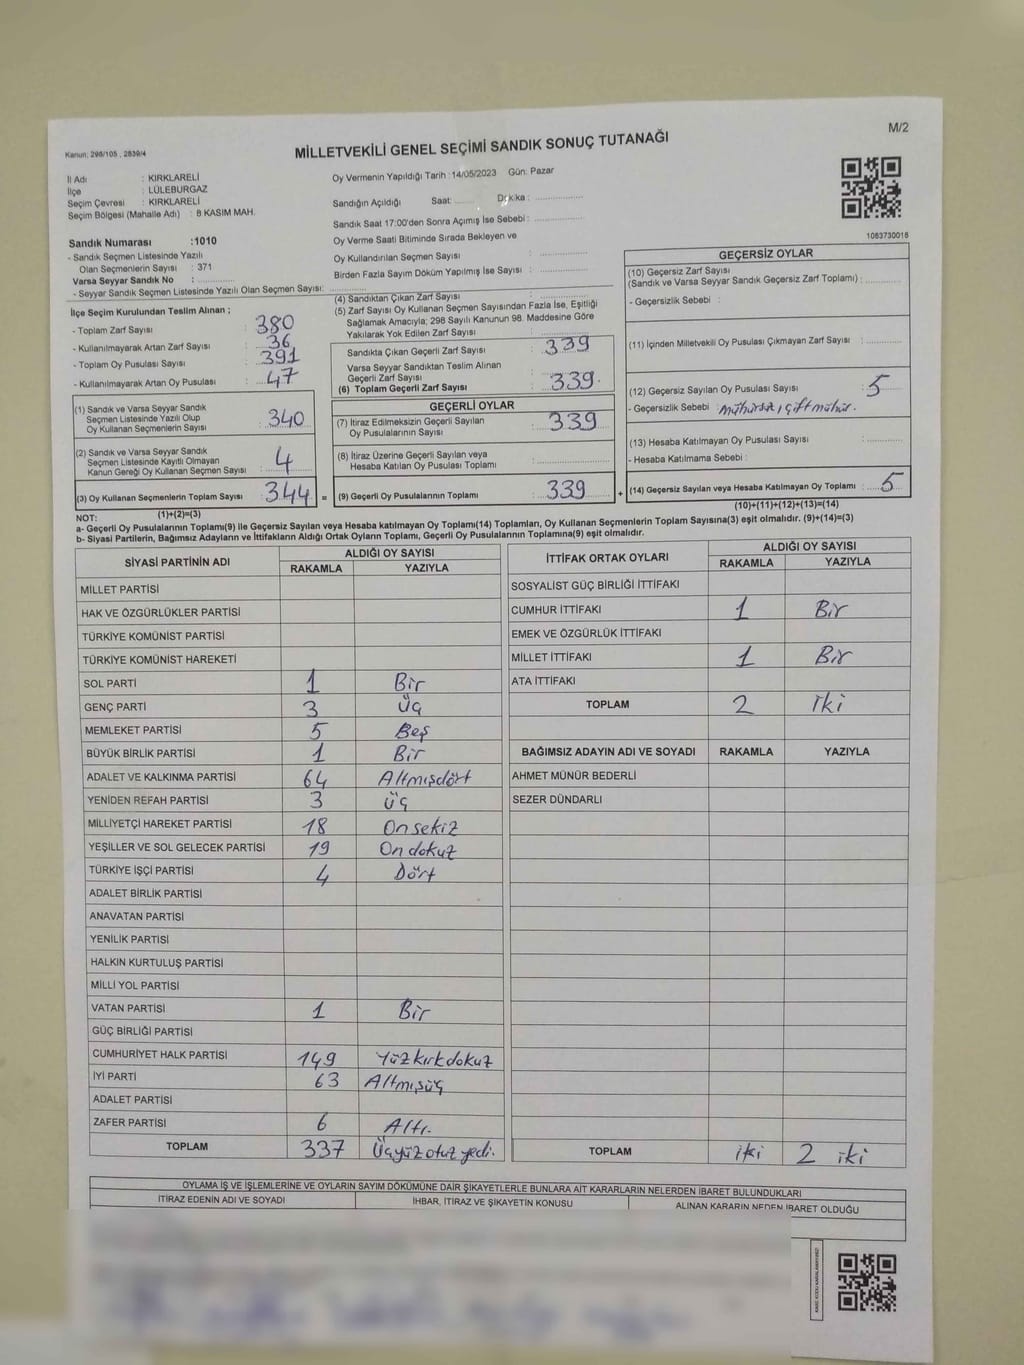 M/2
Kanun: 298/105 , 2839/4
MİLLETVEKİLİ GENEL SEÇİMİ SANDIK SONUÇ TUTANAĞI
İl Adı : KIRKLARELİ
İlçe : LÜLEBURGAZ
Seçim Çevresi : KIRKLARELİ
Seçim Bölgesi (Mahalle Adı) : 8 KASIM MAH.
Oy Vermenin Yapıldığı Tarih :14/05/2023 Gün: Pazar
Sandığın Açıldığı Saat: Dakika :
Sandık Saat 17:00'den Sonra Açımış İse Sebebi :
Oy Verme Saati Bitiminde Sırada Bekleyen ve
Oy Kullandırılan Seçmen Sayısı :
Birden Fazla Sayım Döküm Yapılmış İse Sayısı :
1083730018
Sandık Numarası :1010
- Sandık Seçmen Listesinde Yazılı
Olan Seçmenlerin Sayısı : 371
Varsa Seyyar Sandık No :
- Seyyar Sandık Seçmen Listesinde Yazılı Olan Seçmen Sayısı:
İlçe Seçim Kurulundan Teslim Alınan ;
- Toplam Zarf Sayısı : 380
- Kullanılmayarak Artan Zarf Sayısı : 36
- Toplam Oy Pusulası Sayısı : 391
- Kullanılmayarak Artan Oy Pusulası : 47
(1) Sandık ve Varsa Seyyar Sandık
Seçmen Listesinde Yazılı Olup
Oy Kullanan Seçmenlerin Sayısı : 340
(2) Sandık ve Varsa Seyyar Sandık
Seçmen Listesinde Kayıtlı Olmayan
Kanun Gereği Oy Kullanan Seçmen Sayısı : 4
(3) Oy Kullanan Seçmenlerin Toplam Sayısı : 344 =
(1)+(2)=(3)
(4) Sandıktan Çıkan Zarf Sayısı :
(5) Zarf Sayısı Oy Kullanan Seçmen Sayısından Fazla İse, Eşitliği
Sağlamak Amacıyla; 298 Sayılı Kanunun 98. Maddesine Göre
Yakılarak Yok Edilen Zarf Sayısı :
Sandıkta Çıkan Geçerli Zarf Sayısı : 339
Varsa Seyyar Sandıktan Teslim Alınan
Geçerli Zarf Sayısı :
(6) Toplam Geçerli Zarf Sayısı : 339
GEÇERLİ OYLAR
(7) İtiraz Edilmeksizin Geçerli Sayılan
Oy Pusulalarının Sayısı : 339
(8) İtiraz Üzerine Geçerli Sayılan veya
Hesaba Katılan Oy Pusulası Toplamı :
(9) Geçerli Oy Pusulalarının Toplamı : 339 +
GEÇERSİZ OYLAR
(10) Geçersiz Zarf Sayısı
(Sandık ve Varsa Seyyar Sandık Geçersiz Zarf Toplamı) :
- Geçersizlik Sebebi :
(11) İçinden Milletvekili Oy Pusulası Çıkmayan Zarf Sayısı :
(12) Geçersiz Sayılan Oy Pusulası Sayısı : 5
- Geçersizlik Sebebi : çift mühür.
(13) Hesaba Katılmayan Oy Pusulası Sayısı :
- Hesaba Katılmama Sebebi :
(14) Geçersiz Sayılan veya Hesaba Katılmayan Oy Toplamı : 5
(10)+(11)+(12)+(13)=(14)
NOT:
a- Geçerli Oy Pusulalarının Toplamı(9) ile Geçersiz Sayılan veya Hesaba katılmayan Oy Toplamı(14) Toplamları, Oy Kullanan Seçmenlerin Toplam Sayısına(3) eşit olmalıdır. (9)+(14)=(3)
b- Siyasi Partilerin, Bağımsız Adayların ve İttifakların Aldığı Ortak Oyların Toplamı, Geçerli Oy Pusulalarının Toplamına(9) eşit olmalıdır.
SİYASİ PARTİNİN ADI ALDIĞI OY SAYISI
RAKAMLA YAZIYLA
MİLLET PARTİSİ
HAK VE ÖZGÜRLÜKLER PARTİSİ
TÜRKİYE KOMÜNİST PARTİSİ
TÜRKİYE KOMÜNİST HAREKETİ
SOL PARTİ 1 Bir
GENÇ PARTİ 3 Üç
MEMLEKET PARTİSİ 5 Beş
BÜYÜK BİRLİK PARTİSİ 1 Bir
ADALET VE KALKINMA PARTİSİ 64 Altmışdört
YENİDEN REFAH PARTİSİ 3 üç
MİLLİYETÇİ HAREKET PARTİSİ 18 On sekiz
YEŞİLLER VE SOL GELECEK PARTİSİ 19 On dokuz
TÜRKİYE İŞÇİ PARTİSİ 4 Dört
ADALET BİRLİK PARTİSİ
ANAVATAN PARTİSİ
YENİLİK PARTİSİ
HALKIN KURTULUŞ PARTİSİ
MİLLİ YOL PARTİSİ
VATAN PARTİSİ 1 Bir
GÜÇ BİRLİĞİ PARTİSİ
CUMHURİYET HALK PARTİSİ 149 Yüz kırk dokuz
İYİ PARTİ 63 Altmışüç
ADALET PARTİSİ
ZAFER PARTİSİ 6 Altı.
TOPLAM 337 Üçyüz otuz yedi.
İTTİFAK ORTAK OYLARI ALDIĞI OY SAYISI
RAKAMLA YAZIYLA
SOSYALİST GÜÇ BİRLİĞİ İTTİFAKI
CUMHUR İTTİFAKI 1 Bir
EMEK VE ÖZGÜRLÜK İTTİFAKI
MİLLET İTTİFAKI 1 Bir
ATA İTTİFAKI
TOPLAM 2 İki
BAĞIMSIZ ADAYIN ADI VE SOYADI RAKAMLA YAZIYLA
AHMET MÜNÜR BEDERLİ
SEZER DÜNDARLI
TOPLAM iki 2 iki
OYLAMA İŞ VE İŞLEMLERİNE VE OYLARIN SAYIM DÖKÜMÜNE DAİR ŞİKAYETLERLE BUNLARA AİT KARARLARIN NELERDEN İBARET BULUNDUKLARI
İTİRAZ EDENİN ADI VE SOYADI İHBAR, İTİRAZ VE ŞİKAYETİN KONUSU ALINAN KARARIN NEDEN İBARET OLDUĞU